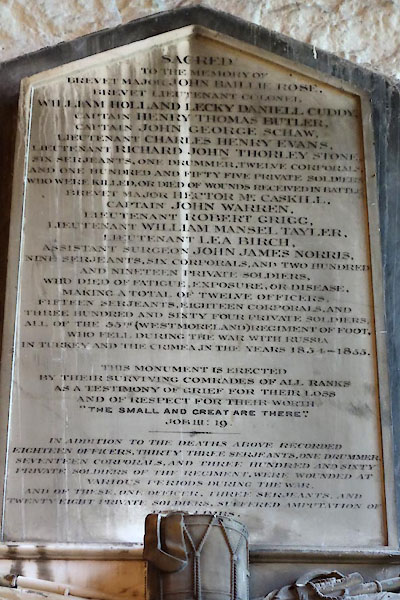 SACRED
TO THE MEMORY OF
BREVET MAJOR JOHN BAILLIE ROSE,
BREVET LIEUTENANT COLONEL
WILLIAM HOLLAND LECKY DANIELL CUDDY,
CAPTAIN HENRY THOMAS BUTLER,
CAPTAIN JOHN GEORGE SCHAW,
LIEUTENANT CHARLES HENRY EVANS,
LIEUTENANT RICHARD JOHN THORLEY STONE,
SIX SERJEANTS, ONE DRUMMER, TWELVE CORPORALS,
AND ONE HUNDRED AND FIFTY FIVE PRIVATE SOLDIERS
WHO WERE KILLED, OR DIED OF WOUNDS RECEIVED IN BATTLE
BREVET MAJOR HECTOR Mc CASKILL,
CAPTAIN JOHN WARREN,
LIEUTENANT ROBERT GRIGG,
LIEUTENANT WILLIAM MANSEL TAYLER,
LIEUTENANT LEA BIRCH,
ASSISTANT SURGEON JOHN JAMES NORRIS,
NINE SERJEANTS, SIX CORPORALS, AND TWO HUNDRED
AND NINETEEN PRIVATE SOLDIERS,
WHO DIED OF FATIGUE, EXPOSURE, OR DISEASE,
MAKING A TOTAL OF TWELVE OFFICERS,
FIFTEEN SERJEANTS, EIGHTEEN CORPORALS, AND
THREE HUNDRED AND SIXTY FOUR PRIVATE SOLDIERS
ALL OF THE 55TH (WESTMORELAND) REGIMENT OF FOOT,
WHO FELL DURING THE WAR WITH RUSSIA
IN TURKEY AND THE CRIMEA, IN THE YEARS 1854-1855.
THIS MONUMENT IS ERECTED
BY THEIR SURVIVING COMRADES OF ALL RANKS
AS A TESTIMONY OF GRIEF FOR THEIR LOSS
AND OF RESPECT FOR THEIR WORTH
"THE SMALL AND GREAT ARE THERE"
JOB III: 19.
IN ADDITION TO THE DEATHS ABOVE RECORDED
EIGHTEEN OFFICERS, THIRTY THREE SERJEANTS, ONE DRUMMER
SEVENTEEN CORPORALS, AND THREE HUNDRED AND SIXTY
PRIVATE SOLDIERS OF THE REGIMENT, WERE WOUNDED AT
VARIOUS PERIODS DURING THE WAR.
AND OF THESE, ONE OFFICER, THREE SERJEANTS, AND
TWENTY EIGHT PRIVATE SOLDIERS, SUFFERED AMPUTATION OF